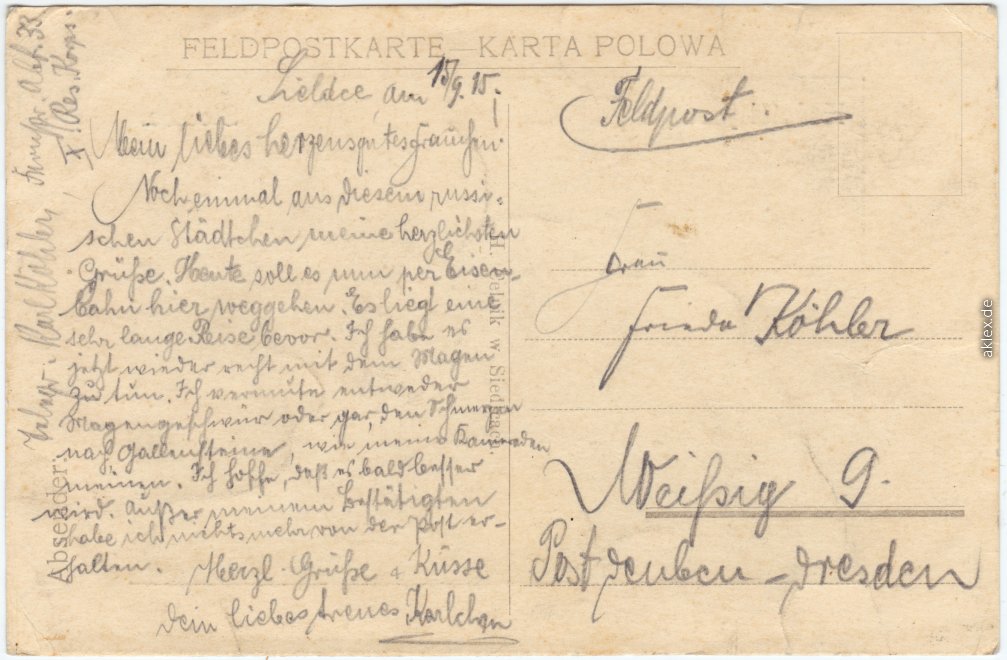 FELDPOSTKARTE — KARTA POLOWA
Sieldce, am 15/9. 15.
Mein liebes herzensgutes Frauchen!
Noch einmal aus diesem russi-
schen Städtchen meine herzlichsten
Grüße. Heute soll es nun per Eisen-
bahn hier weggehen. Es liegt eine
sehr lange Reise bevor. Ich habe es
jetzt wieder recht mit dem Magen
zu tun. Ich vermute entweder
Magengeschwür oder gar, den Schmerzen
nach Gallensteine, wie meine Kameraden
meinen. Ich hoffe, daß es bald besser
wird. Außer meinem Bestätigten
habe ich nichts mehr von der Post er-
halten. Herzl. Grüße & Küsse
Dein liebes treues Karlchen
Absender:
Karl Köhler,
Abt. 33
X. Res. Korps.
w Siedlcach.
Feldpost.
Frau
Frieda Köhler
Weißig 9.
Post Deuben - Dresden
aklex.de